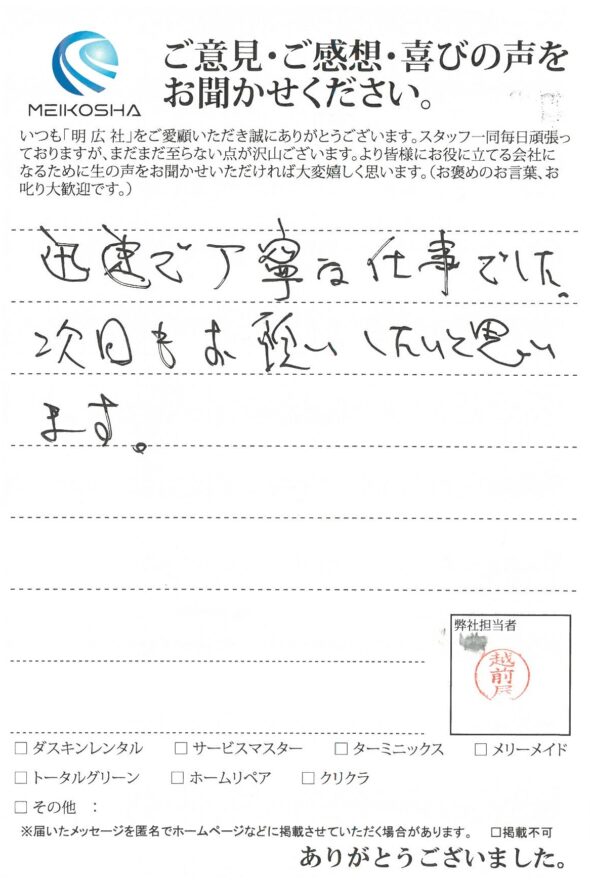 MEIKOSHA
ご意見・ご感想・喜びの声を
お聞かせください。
いつも「明広社」をご愛顧いただき誠にありがとうございます。スタッフ一同毎日頑張っ
ておりますが、まだまだ至らない点が沢山ございます。より皆様にお役に立てる会社に
なるために生の声をお聞かせいただければ大変嬉しく思います。（お褒めのお言葉、お
叱り大歓迎です。）
迅速で丁寧な仕事でした。
次回もお願いしたいと思い
ます。
弊社担当者
越前屋
□ ダスキンレンタル □ サービスマスター □ ターミニックス □ メリーメイド
□ トータルグリーン □ ホームリペア □ クリクラ
□ その他 ：
※届いたメッセージを匿名でホームページなどに掲載させていただく場合があります。 □掲載不可
ありがとうございました。